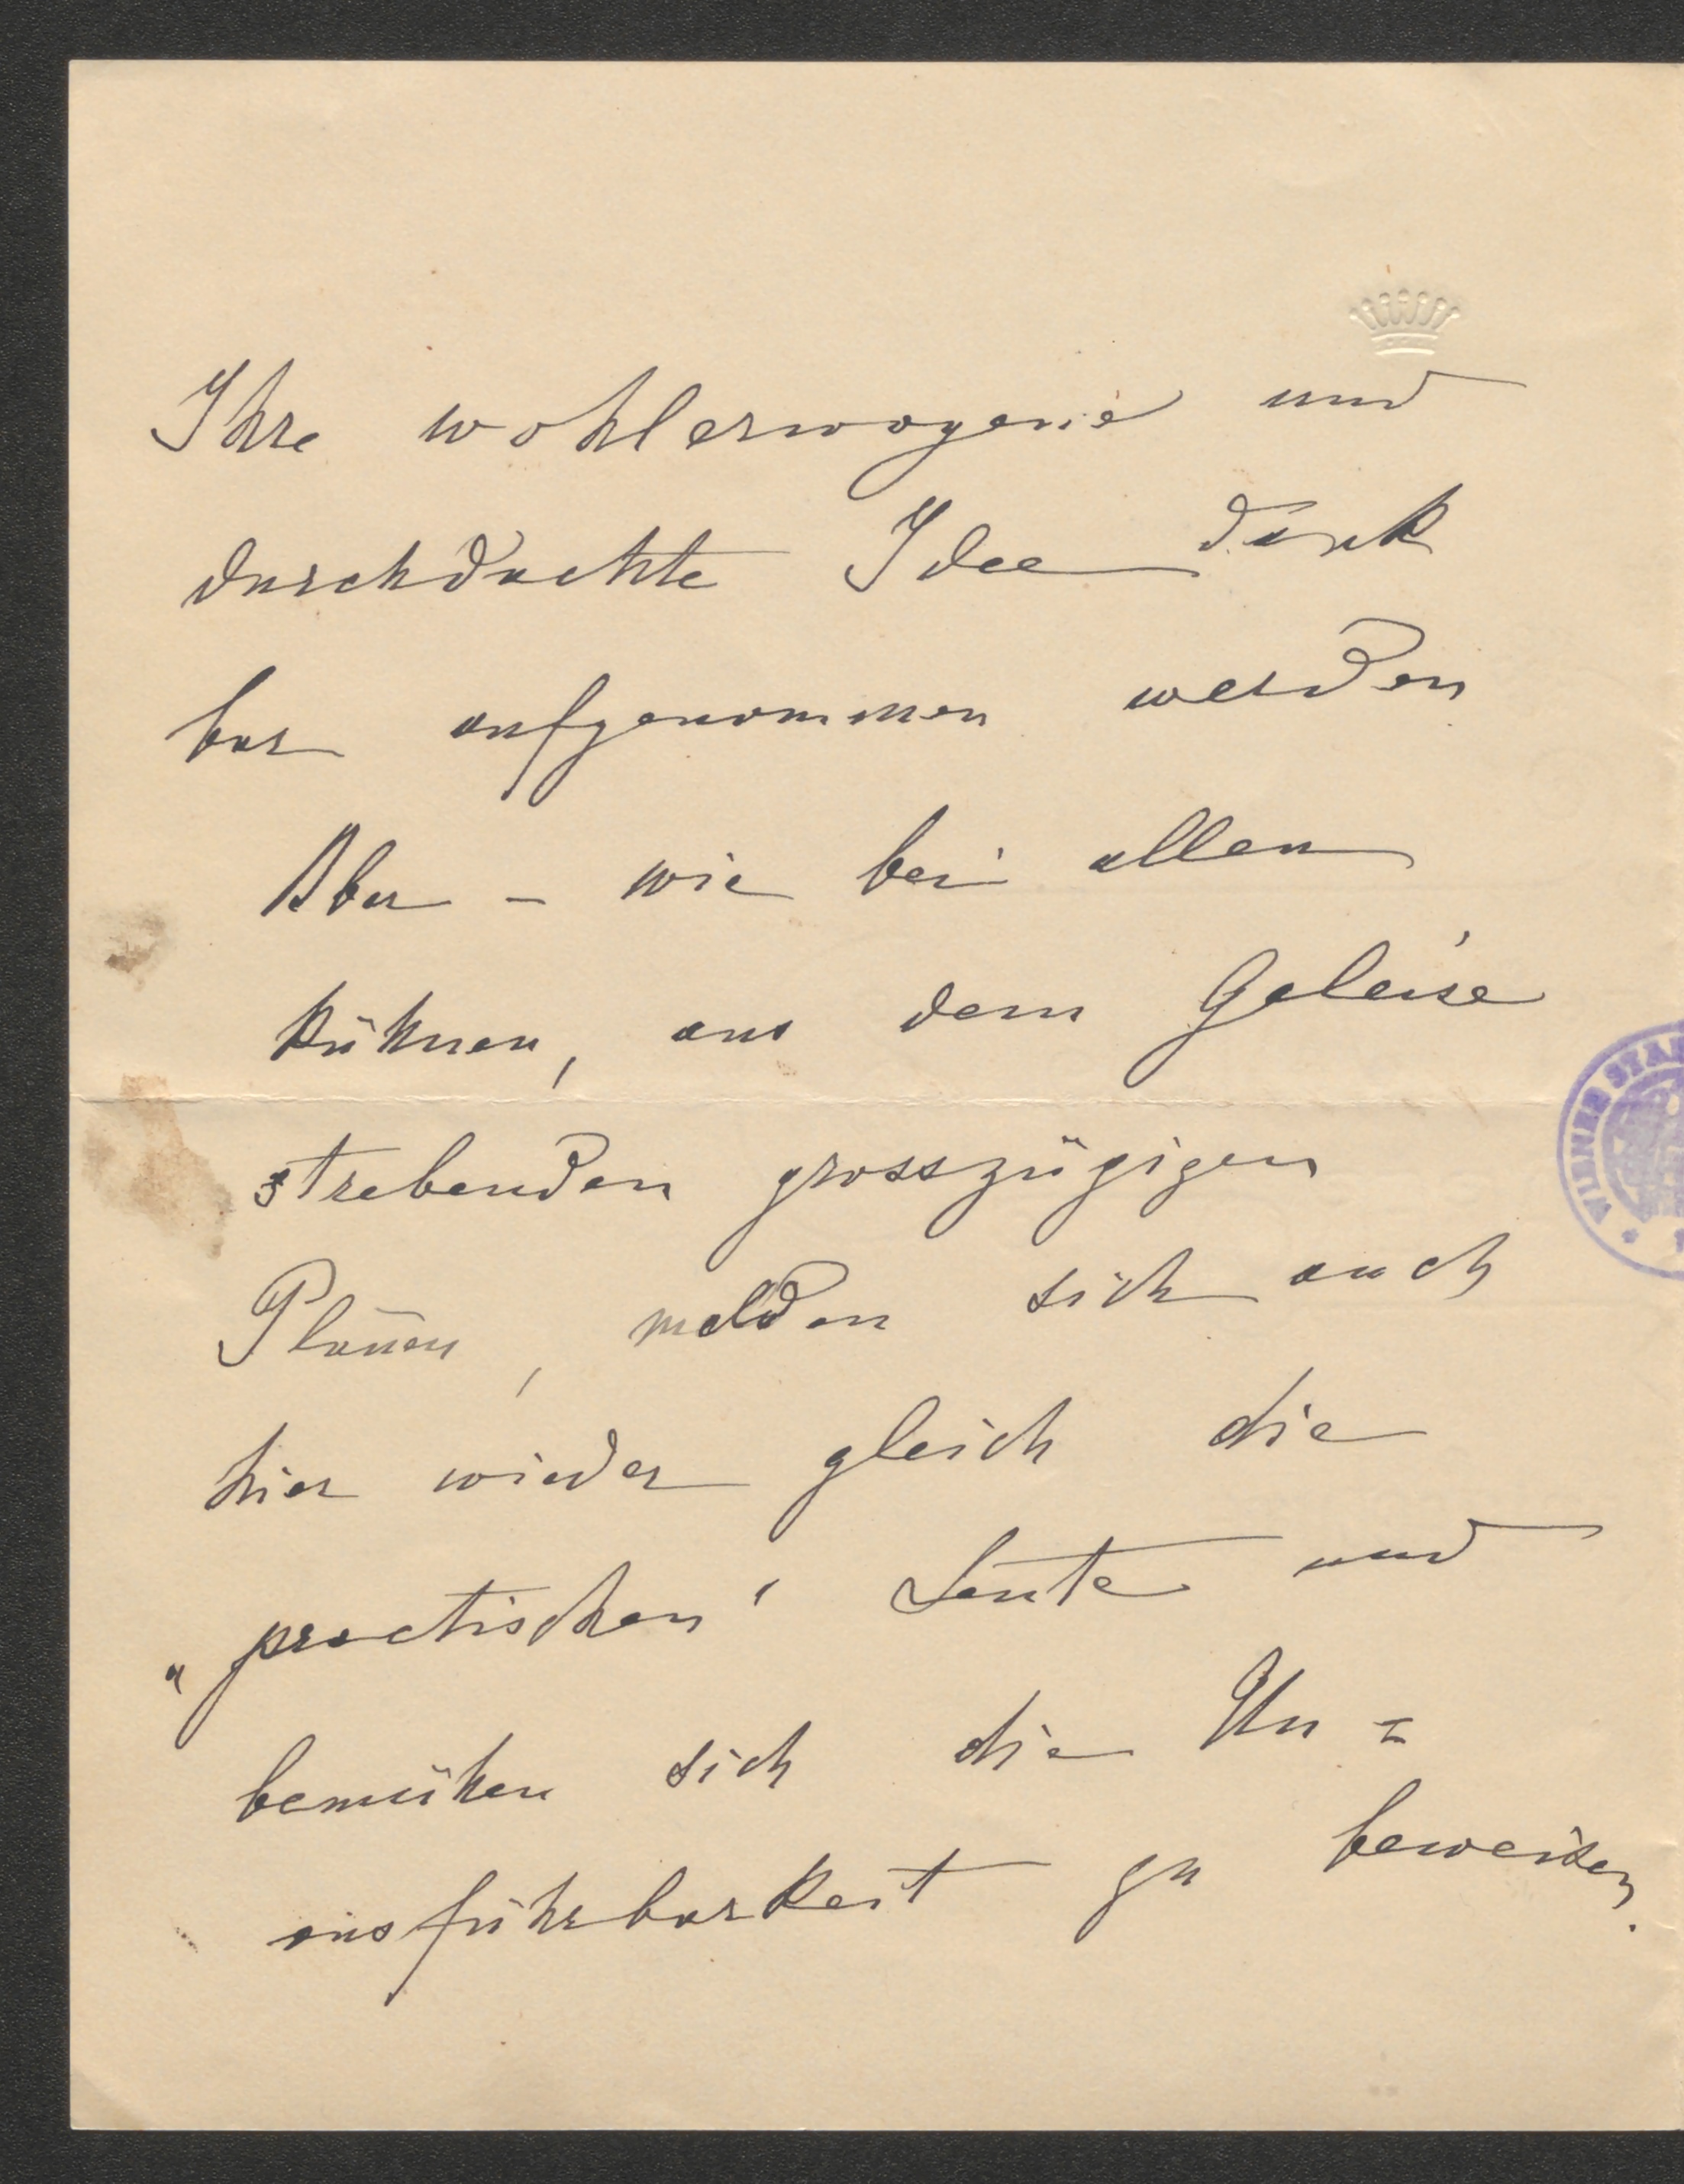 Ihre wohlerwogene und
durchdachte Idee dank
bar aufgenommen werden
Aber – wie bei allen
kühnen, aus dem Geleise
strebenden grosszügigen
Plänen, melden sich auch
hier wieder gleich die
„practischen“ Leute und
bemühen sich die Un=
ausführbarkeit zu beweisen.
WIENER STA